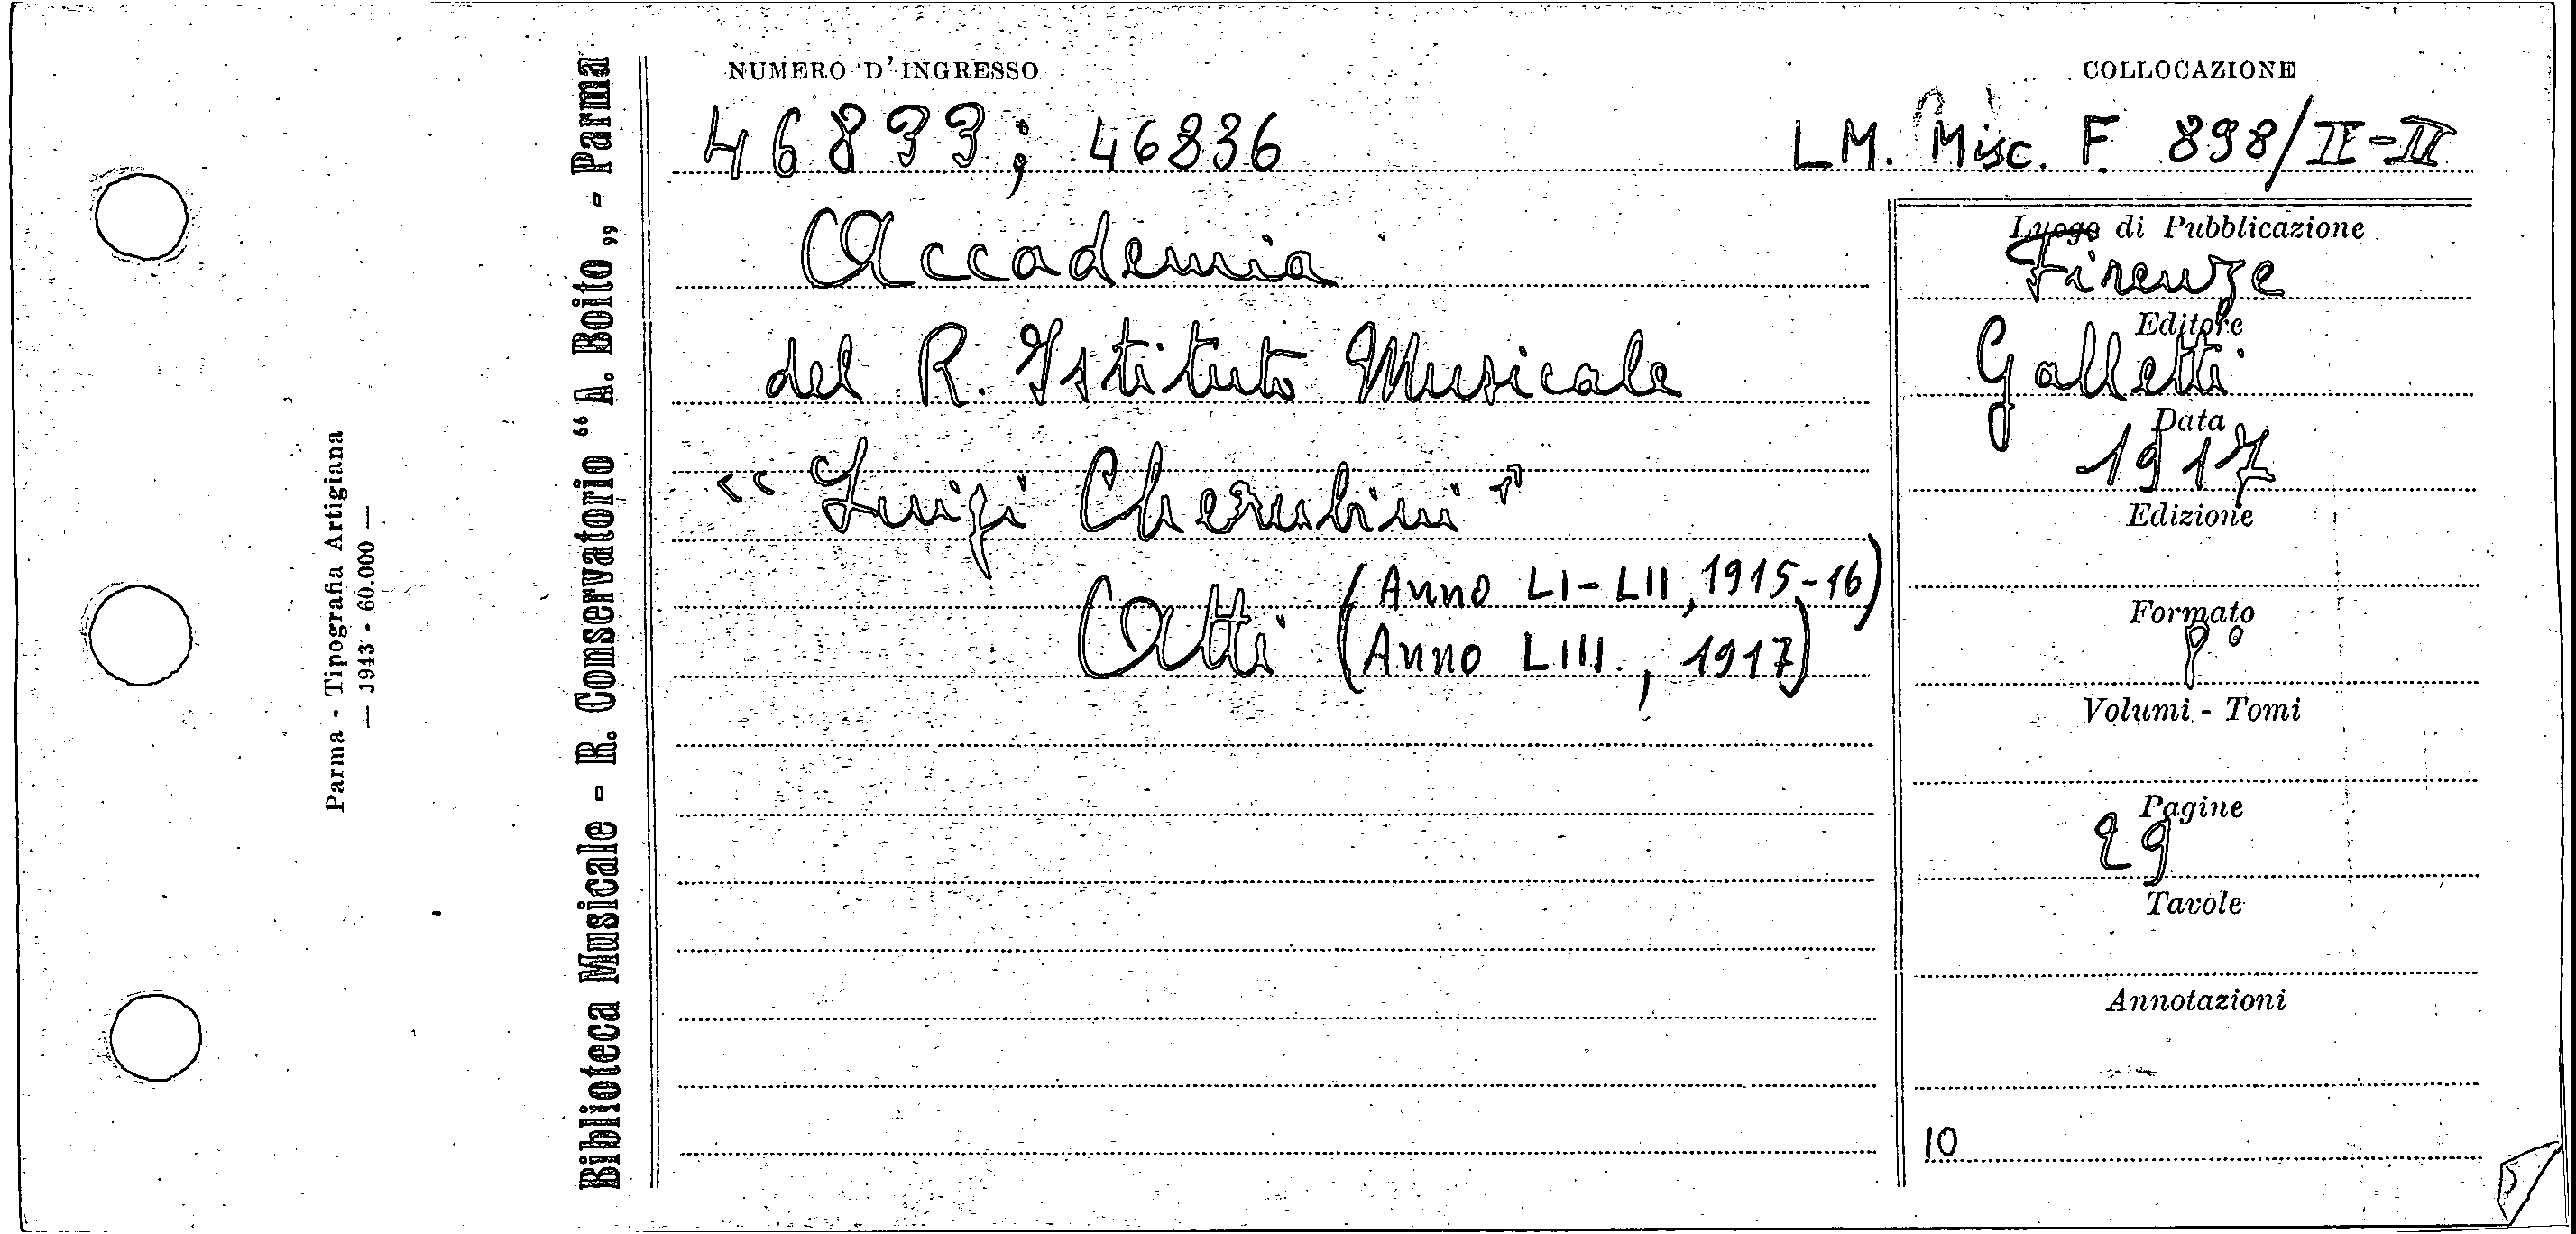 NUMERO D'INGRESSO
46833; 46836
COLLOCAZIONE
LM. Misc. F. 898/II-II
Accademia
del R. Istituto Musicale
“Luigi Cherubini”
Atti (Anno LI-LII, 1915-16)
(Anno LIII., 1917)
Luogo di Pubblicazione
Firenze
Editore
Galletti
Data
1917
Edizione
Formato
8°
Volumi - Tomi
Pagine
29
Tavole
Annotazioni
10
Biblioteca Musicale - R. Conservatorio “A. Boito„ - Parma
Parma - Tipografia Artigiana
— 1943 - 60.000 —